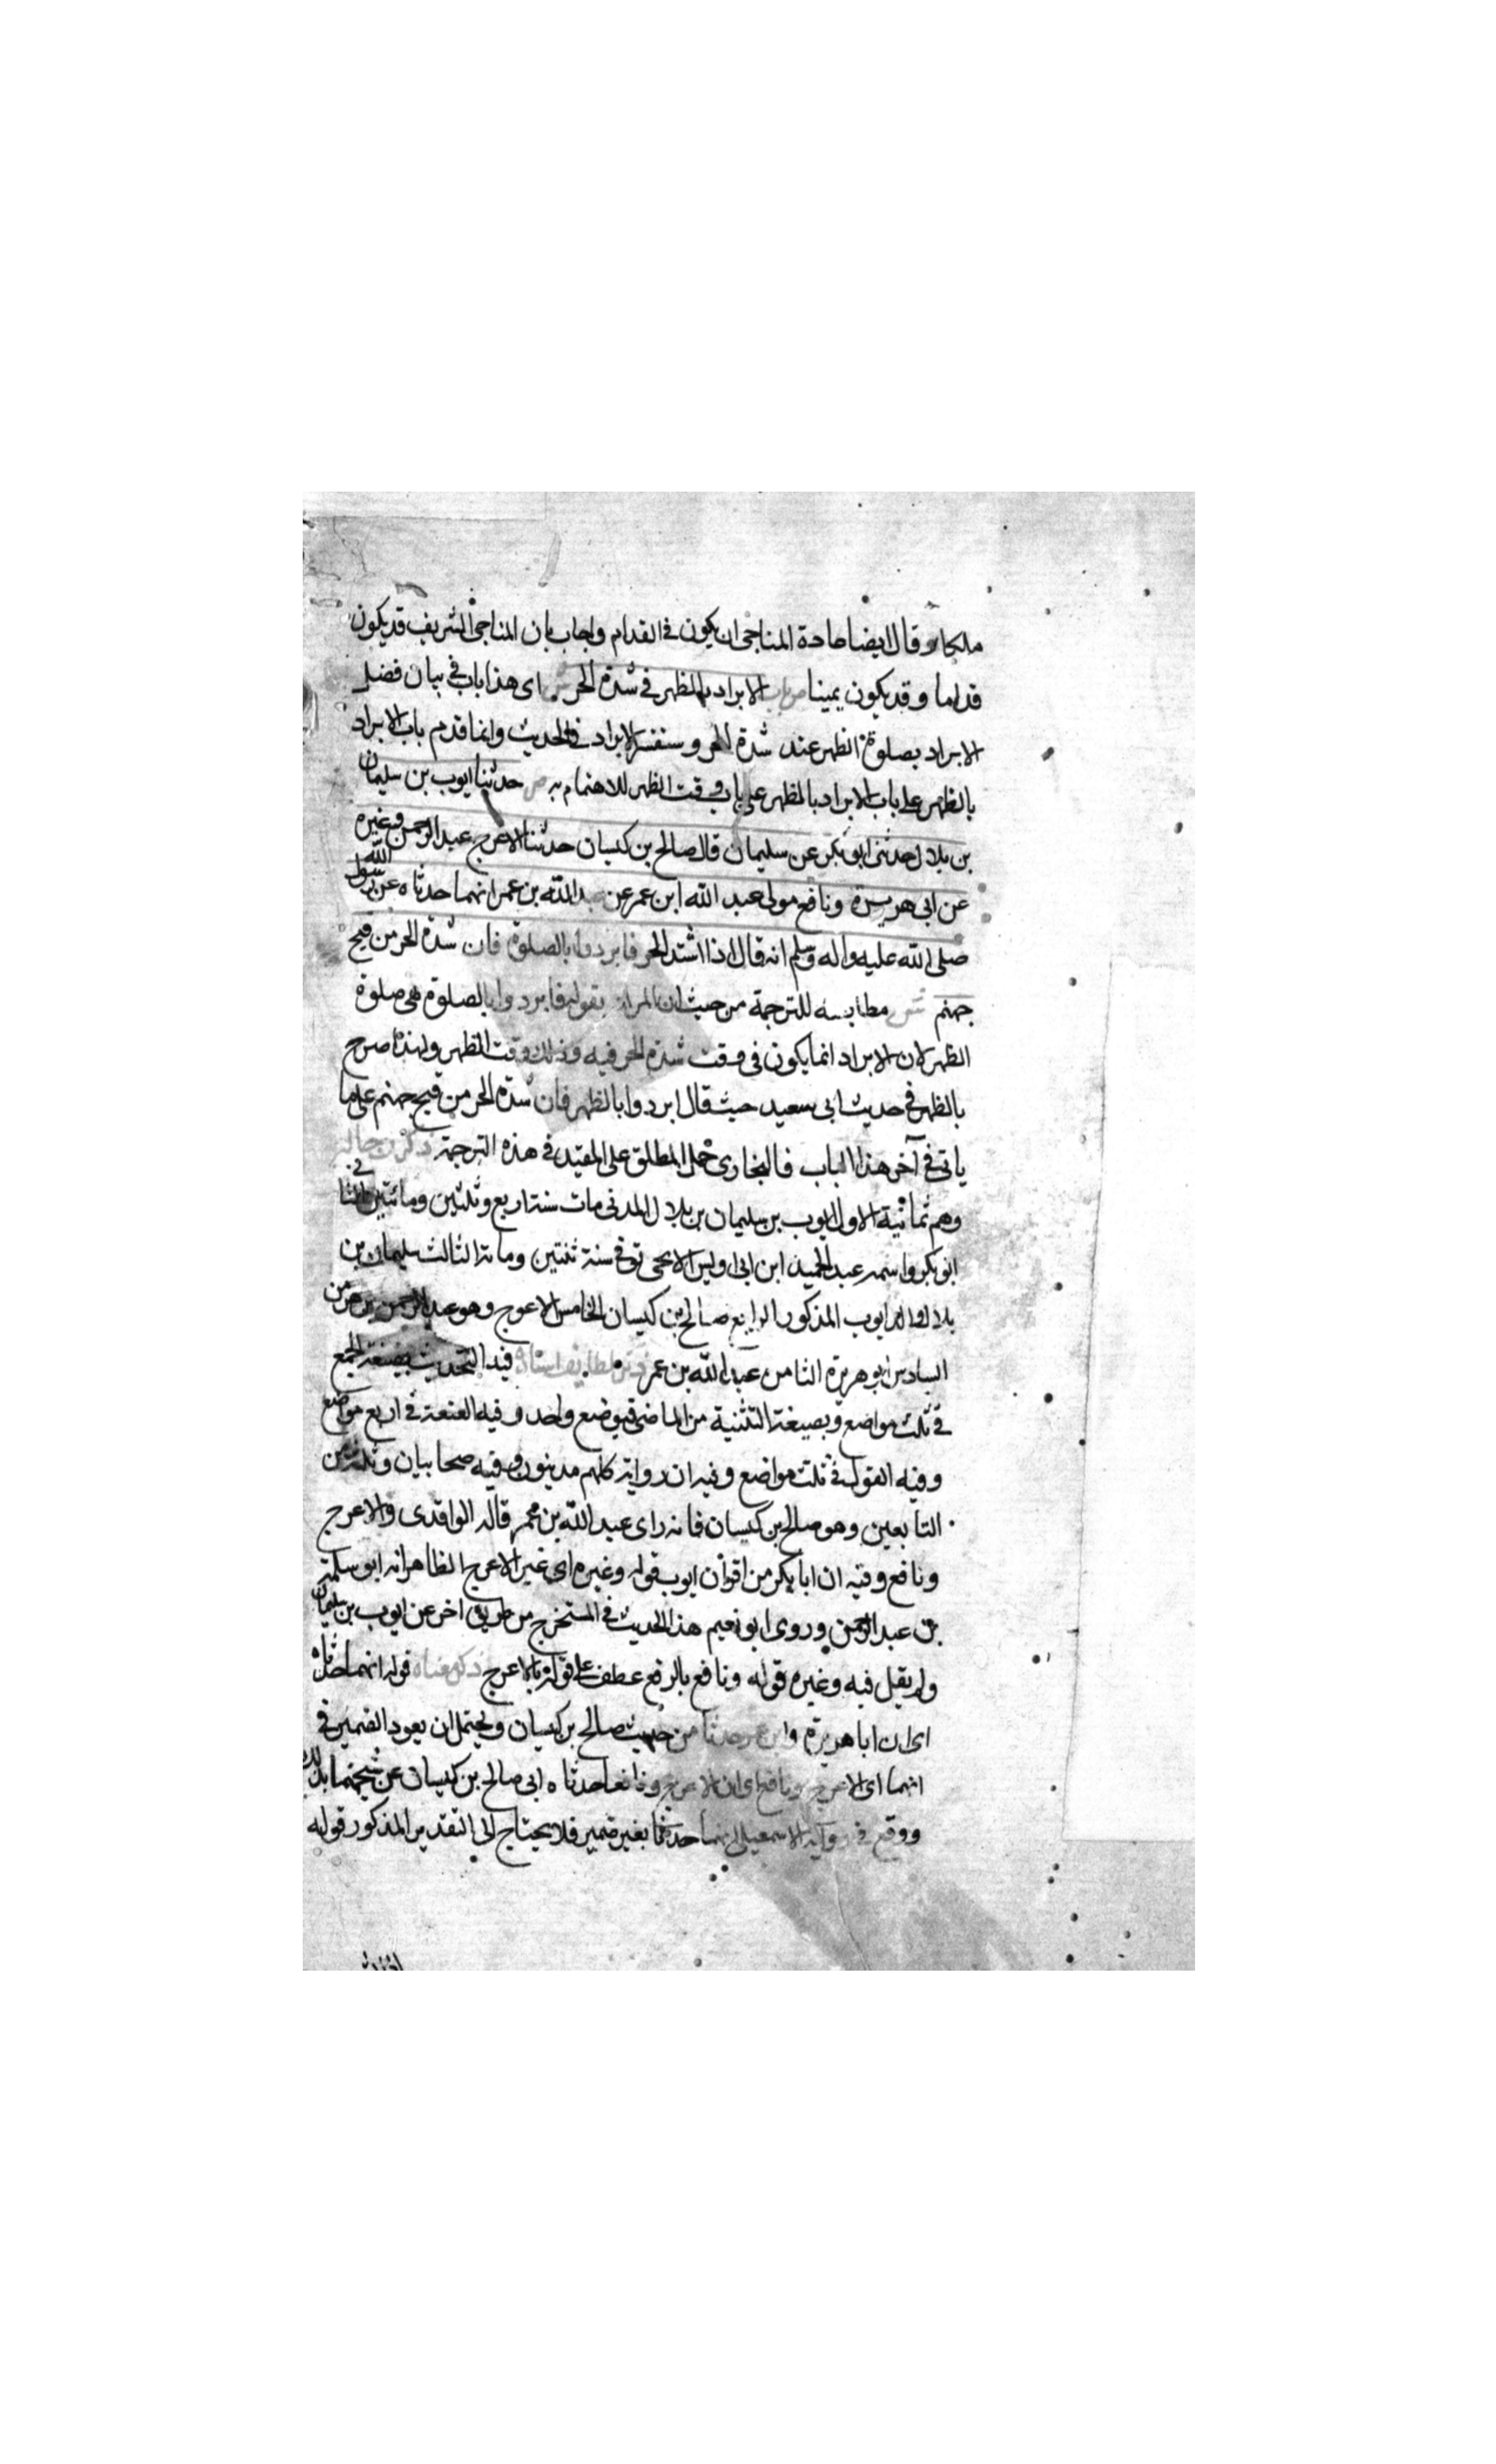 ملكا وقال ايضا عادة المناجى ان يكون فى القدام واجاب بان المناجى الشريف قد يكون
قداما وقد يكون يمينا ص باب الابراد بالظهر فى شدة الحر ش اى هذا باب فى بيان فضل
الابراد بصلوة الظهر عند شدة الحر وسنفسر الابراد فى الحديث وانما قدم باب الابراد
بالظهر على باب وقت الظهر للاهتمام به ص حدثنا ايوب بن سليمان
بن بلال حدثنى ابو بكر عن سليمان قال صالح بن كيسان حدثنا الاعرج عبد الرحمن وغيره
عن ابى هريرة ونافع مولى عبد الله ابن عمر عن عبد الله بن عمر انهما حدثاه عن رسول الله
صلى الله عليه واله وسلم انه قال اذا اشتد الحر فابردوا بالصلوة فان شدة الحر من فيح
جهنم ش مطابقته للترجمة من حيث ان المراد بقوله فابردوا بالصلوة هى صلوة
الظهر لان الابراد انما يكون فى وقت شدة الحر فيه وذلك وقت الظهر ولهذا صرح
بالظهر فى حديث ابى سعيد حيث قال ابردوا بالظهر فان شدة الحر من فيح جهنم على ما
ياتى فى آخر هذا الباب فالبخارى حمل المطلق على المقيد فى هذه الترجمة ذكر رجاله
وهم ثمانية الاول ايوب بن سليمان بن بلال المدنى مات سنة اربع وثلثين ومائتين الثانى
ابو بكر واسمه عبد الحميد ابن ابى اويس الاصبحى توفى سنة ثنتين ومائة الثالث سليمان بن
بلال والد ايوب المذكور الرابع صالح بن كيسان الخامس الاعرج وهو عبد الرحمن بن هرمز
السادس ابو هريرة الثامن عبد الله بن عمر ذكر لطايف اسناده فيه التحديث بصيغة الجمع
فى ثلث مواضع وبصيغة التثنية من الماضى فى موضع واحد وفيه العنعنة فى اربع مواضع
وفيه القول فى ثلث مواضع وفيه ان رواته كلهم مدنيون وفيه صحابيان وثلثة من
التابعين وهو صالح بن كيسان فانه راى عبد الله بن عمر قاله الواقدى والاعرج
ونافع وفيه ان ابا بكر من اقران ايوب قوله وغيره اى غير الاعرج الظاهر انه ابو سلمة
بن عبد الرحمن وروى ابو نعيم هذا الحديث فى المستخرج من طريق اخر عن ايوب بن سليمان
ولم يقل فيه وغيره قوله ونافع بالرفع عطف على قوله الاعرج ذكر معناه قوله انهما حدثاه
اى ان ابا هريرة وابن عمر حدثا من حديث صالح بن كيسان ويحتمل ان يعود الضمير فى
انهما اى الاعرج ونافع اى ان الاعرج ونافعا حدثاه اى صالح بن كيسان عن شيخهما بذلك
ووقع فى رواية الاسمعيلى انهما حدثا بغير ضمير فلا يحتاج الى التقدير المذكور قوله